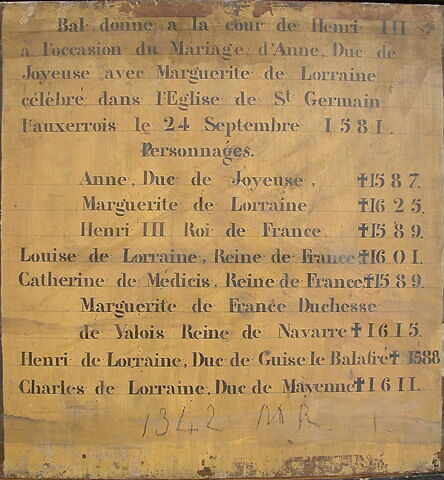 Bal donne a la cour de Henri III
a l'occasion du Mariage d'Anne, Duc de
Joyeuse avec Marguerite de Lorraine
célébré dans l'Eglise de St Germain
l'auxerrois le 24 Septembre 1581.
Personnages.
Anne, Duc de Joyeuse, ✝1587.
Marguerite de Lorraine ✝1625.
Henri III Roi de France. ✝1589.
Louise de Lorraine, Reine de France ✝1601.
Catherine de Médicis, Reine de France ✝1589.
Marguerite de France Duchesse
de Valois Reine de Navarre ✝1615.
Henri de Lorraine, Duc de Guise le Balafré ✝ 1588
Charles de Lorraine, Duc de Mayenne ✝1611.
1342 M R.